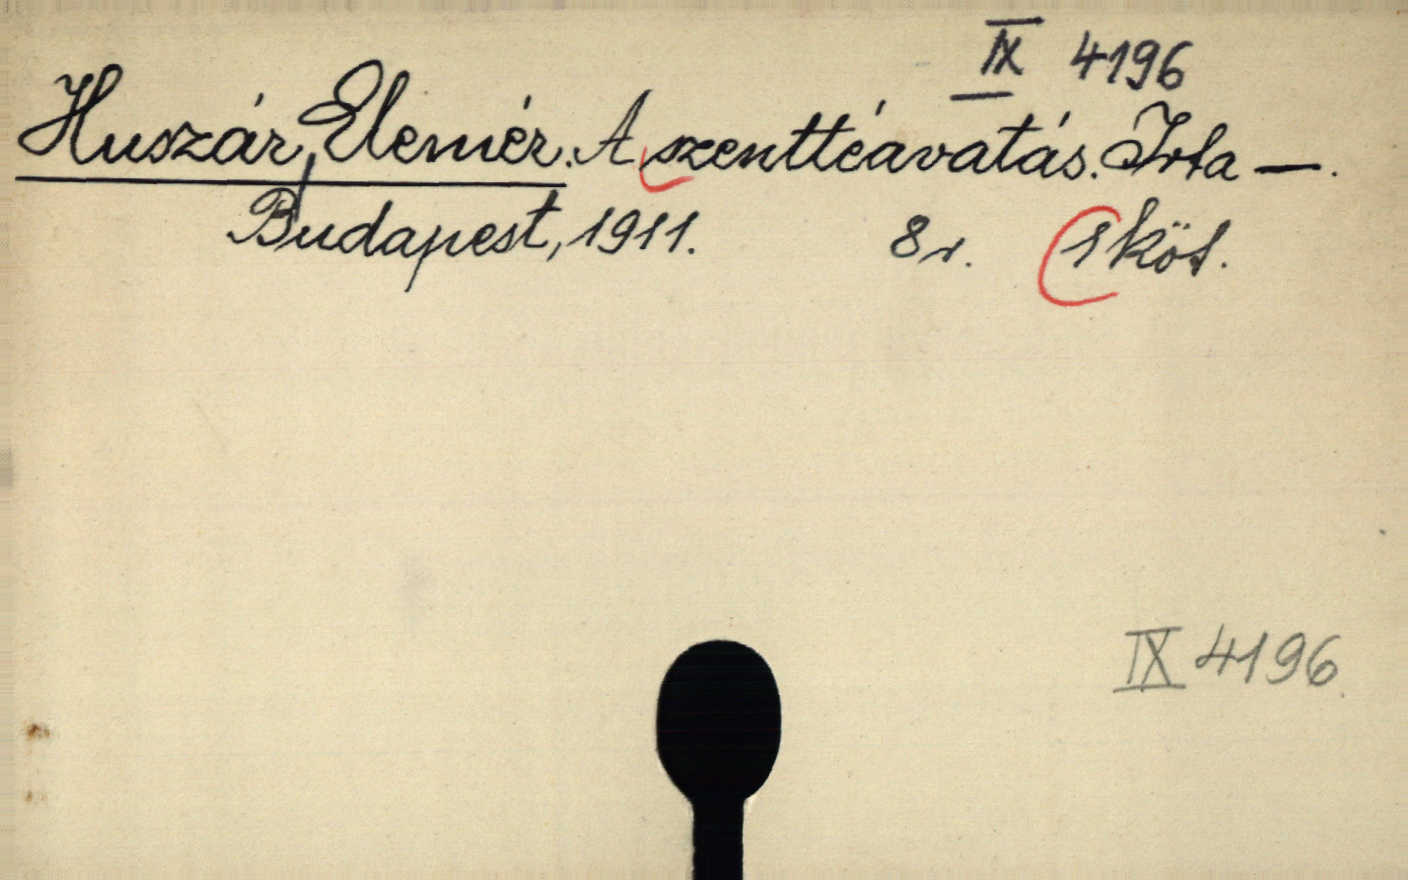 IX 4196
Huszár, Elemér. A szenttéavatás. Irta —.
Budapest, 1911. 8r. 1 köt.
IX 4196